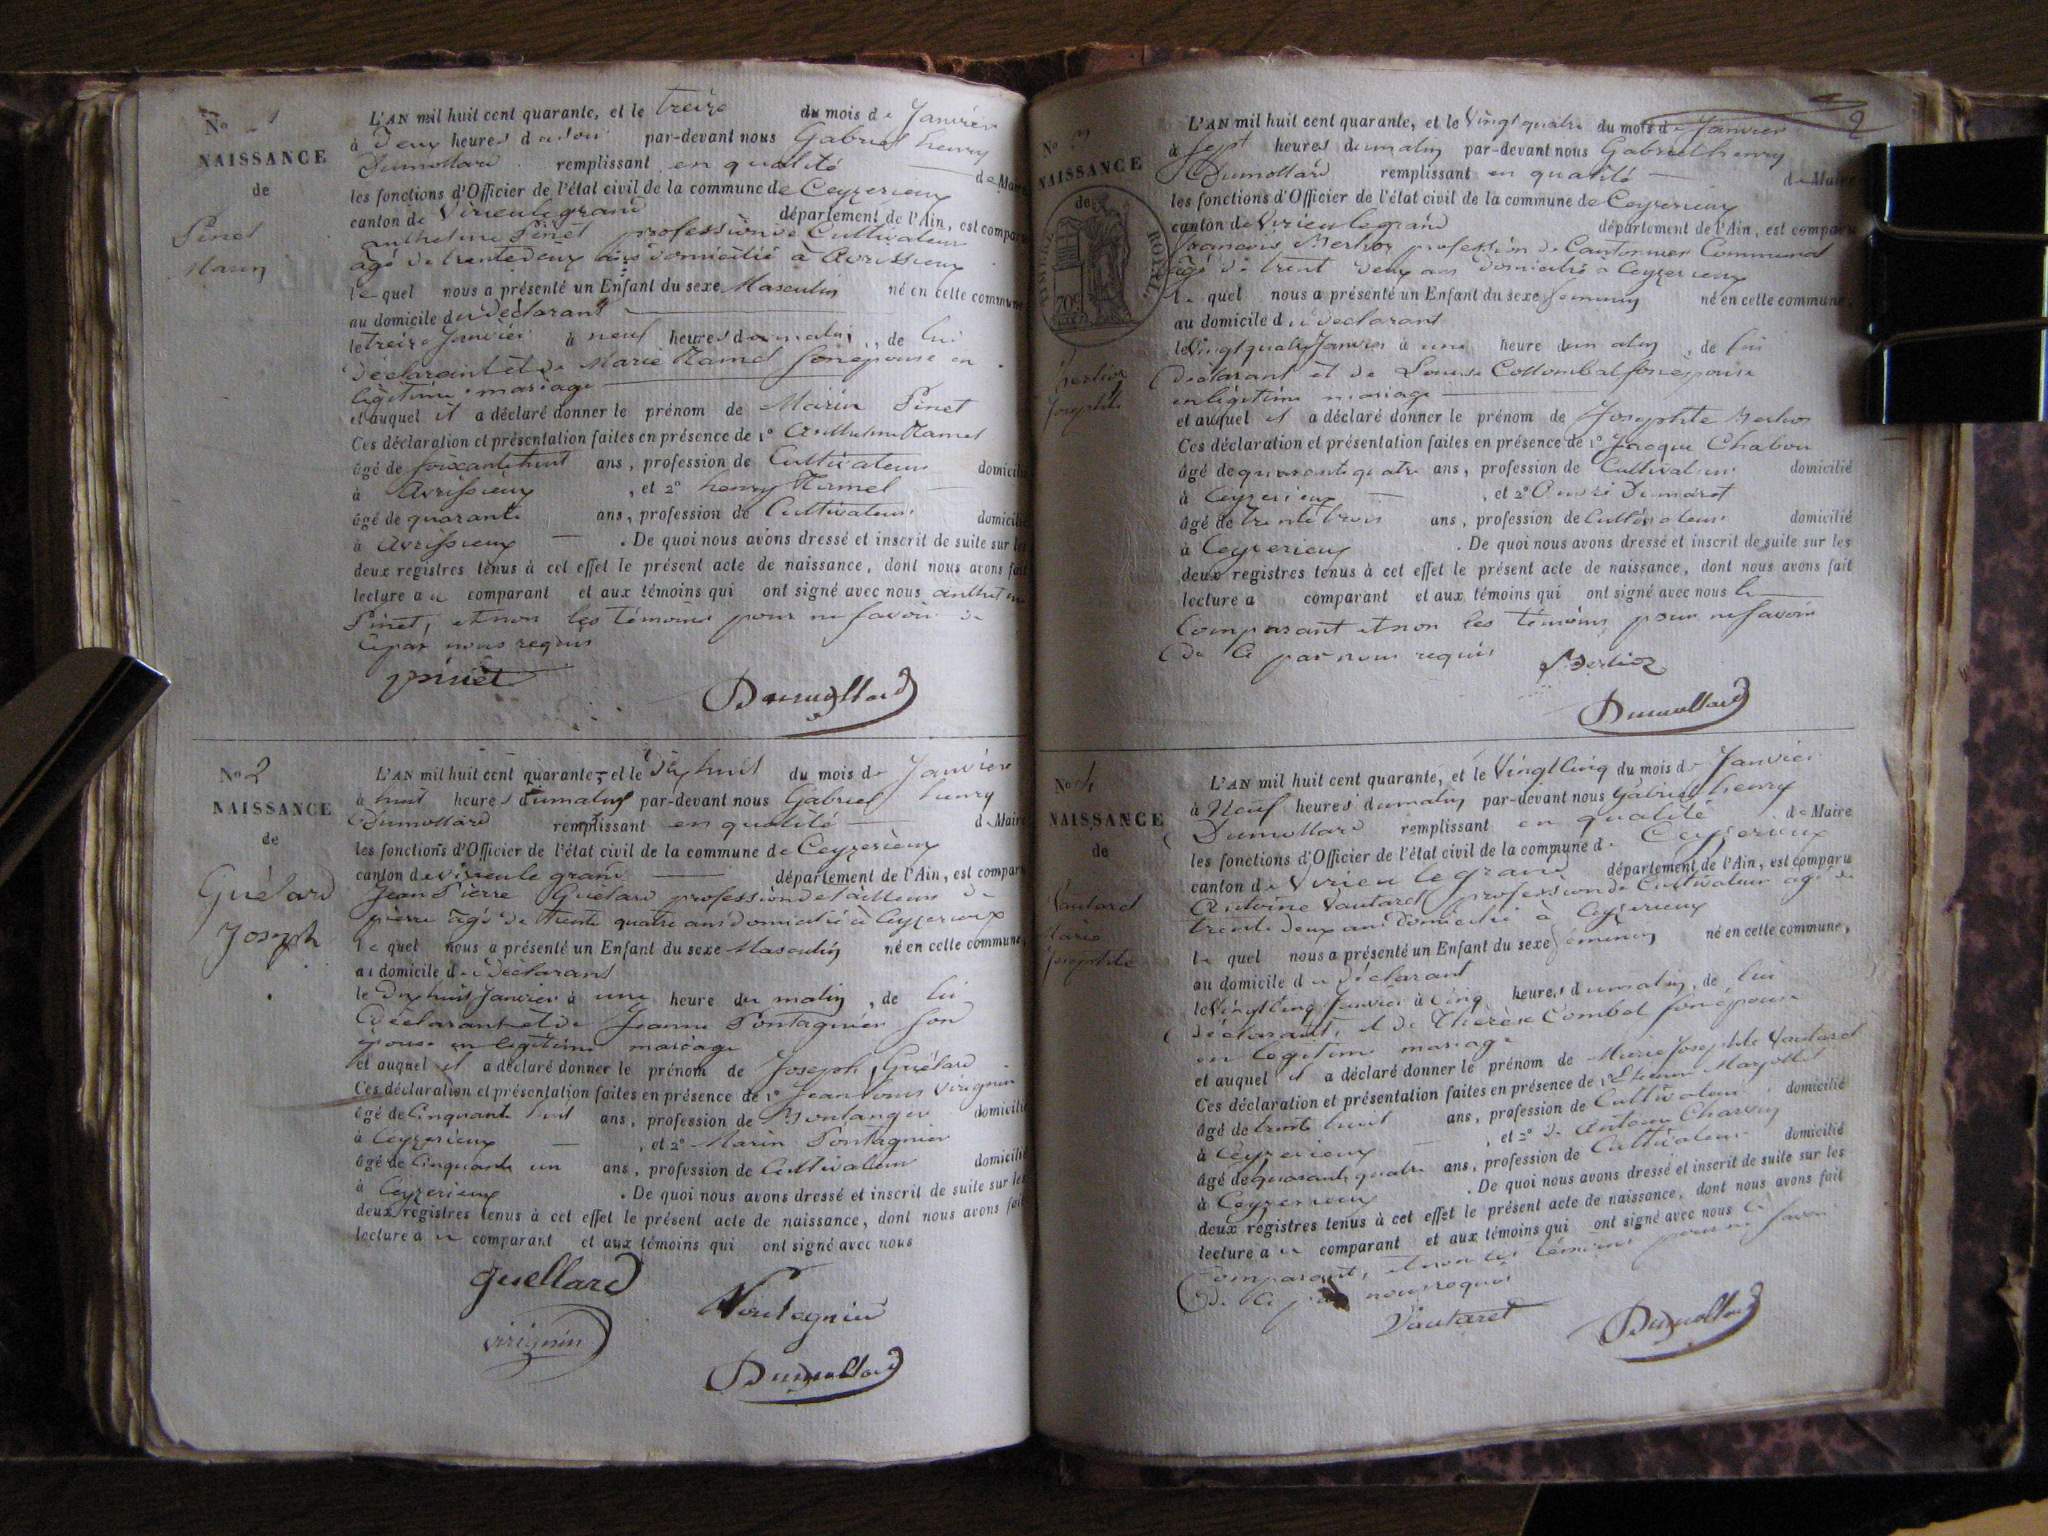 N° 1
NAISSANCE
de
Pinet
Marin
L'AN mil huit cent quarante, et le treize du mois de Janvier
à Deux heures du soir par-devant nous Gabriel henry
Dumollard remplissant en qualité de Maire
les fonctions d'Officier de l'état civil de la commune de Ceyzerieux
canton de Virieu le grand département de l'Ain, est comparu
anthelme Pinet profession de Cultivateur
âgé de trente deux ans domicilié à Avrissieux
le quel nous a présenté un Enfant du sexe Masculin né en cette commune
au domicile du Déclarant
le treize Janvier à neuf heures du matin, de lui
Déclarant et de Marie Ramel son epouse en
légitime mariage
et auquel il a déclaré donner le prénom de Marin Pinet
Ces déclaration et présentation faites en présence de 1° Anthelme Ramel
âgé de soixante huit ans, profession de Cultivateur domicilié
à Avrissieux, et 2° henry Ramel
âgé de quarante ans, profession de Cultivateur domicilié
à Avrissieux. De quoi nous avons dressé et inscrit de suite sur les
deux registres tenus à cet effet le présent acte de naissance, dont nous avons fait
lecture au comparant et aux témoins qui ont signé avec nous anthelme
Pinet, et non les témoins pour ne savoir de
ce par nous requis
pinet
Dumollard
N° 2
NAISSANCE
de
Guélard
Joseph
L'AN mil huit cent quarante, et le Dix huit du mois de Janvier
à huit heures du matin par-devant nous Gabriel henry
Dumollard remplissant en qualité de Maire
les fonctions d'Officier de l'état civil de la commune de Ceyzerieux
canton de virieu le grand département de l'Ain, est comparu
Jean Pierre Guélard profession de tailleur de
pierre âgé de trente quatre ans domicilié à Ceyzerieux
le quel nous a présenté un Enfant du sexe Masculin né en cette commune,
au domicile du Déclarant
le Dix huit Janvier à une heure du matin, de lui
Déclarant et de Jeanne Pontagnier son
épouse en légitime mariage
et auquel il a déclaré donner le prénom de Joseph Guélard
Ces déclaration et présentation faites en présence de 1° Jean Louis Virignin
âgé de Cinquante huit ans, profession de Boulanger domicilié
à Ceyzerieux, et 2° Marin Pontagnier
âgé de Cinquante un ans, profession de Cultivateur domicilié
à Ceyzerieux. De quoi nous avons dressé et inscrit de suite sur les
deux registres tenus à cet effet le présent acte de naissance, dont nous avons fait
lecture au comparant et aux témoins qui ont signé avec nous
guellard
Pontagnier
virignin
Dumollard
2
N° 3
NAISSANCE
de
TIMBRE ROYAL
70c
Berlioz
Josephte
L'AN mil huit cent quarante, et le Vingt quatre du mois de Janvier
à sept heures du matin par-devant nous Gabriel henry
Dumollard remplissant en qualité de Maire
les fonctions d'Officier de l'état civil de la commune de Ceyzerieux
canton de Virieu le grand département de l'Ain, est comparu
francois Berlioz profession de Cantonnier Communal
âgé de trent deux ans domicilié a Ceyzerieux
le quel nous a présenté un Enfant du sexe feminin né en cette commune,
au domicile du declarant
le Vingt quatre Janvier à une heure du matin, de lui
Declarant et de Louise Collombat son epouse
en légitime mariage
et auquel il a déclaré donner le prénom de Josephte Berlioz
Ces déclaration et présentation faites en présence de 1° Jacque Chabou
âgé de quarante quatre ans, profession de Cultivateur domicilié
à Ceyzerieux, et 2° André Dumaret
âgé de trente trois ans, profession de Cultivateur domicilié
à Ceyzerieux. De quoi nous avons dressé et inscrit de suite sur les
deux registres tenus à cet effet le présent acte de naissance, dont nous avons fait
lecture a comparant et aux témoins qui ont signé avec nous le
Comparant et non les témoins pour ne savoir
De ce par nous requis
Berlioz
Dumollard
N° 4
NAISSANCE
de
Vautaret
Marie
Josephte
L'AN mil huit cent quarante, et le Vingt Cinq du mois de Janvier
à Neuf heures du matin par-devant nous Gabriel henry
Dumollard remplissant en qualité de Maire
les fonctions d'Officier de l'état civil de la commune de Ceyzerieux
canton de Virieu le grand département de l'Ain, est comparu
Antoine Vautaret profession de Cultivateur agé de
trente Deux ans domicilié à Ceyzerieux
le quel nous a présenté un Enfant du sexe féminin né en cette commune,
au domicile du Déclarant
le Vingt Cinq Janvier à Cinq heures du matin, de lui
déclarant, et de Thérèse Combet son épouse
en légitime mariage
et auquel il a déclaré donner le prénom de Marie Josephte Vautaret
Ces déclaration et présentation faites en présence de 1° Etienne
âgé de trente huit ans, profession de Cultivateur domicilié
à Ceyzerieux, et 2° de Antoine Charvin
âgé de quarante quatre ans, profession de Cultivateur domicilié
à Ceyzerieux. De quoi nous avons dressé et inscrit de suite sur les
deux registres tenus à cet effet le présent acte de naissance, dont nous avons fait
lecture au comparant et aux témoins qui ont signé avec nous le
Comparant, et non les témoins pour ne savoir
De ce par nous requis
Vautaret
Dumollard